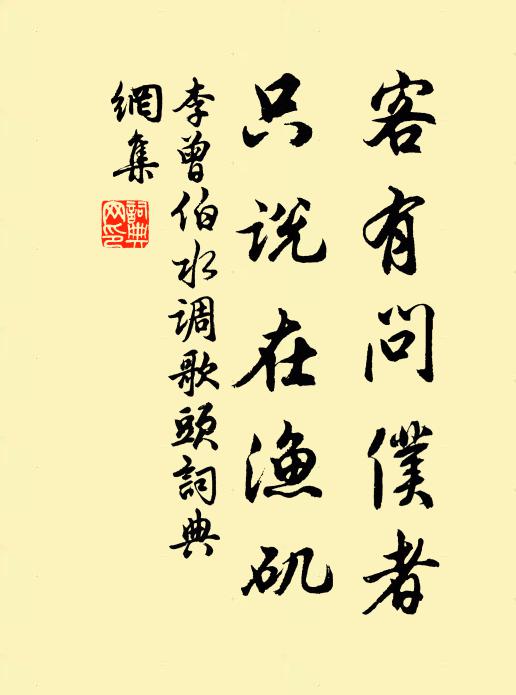 客有问僕者
只说在渔矶
李曾伯水调歌头詞典
網集
詞典
网印